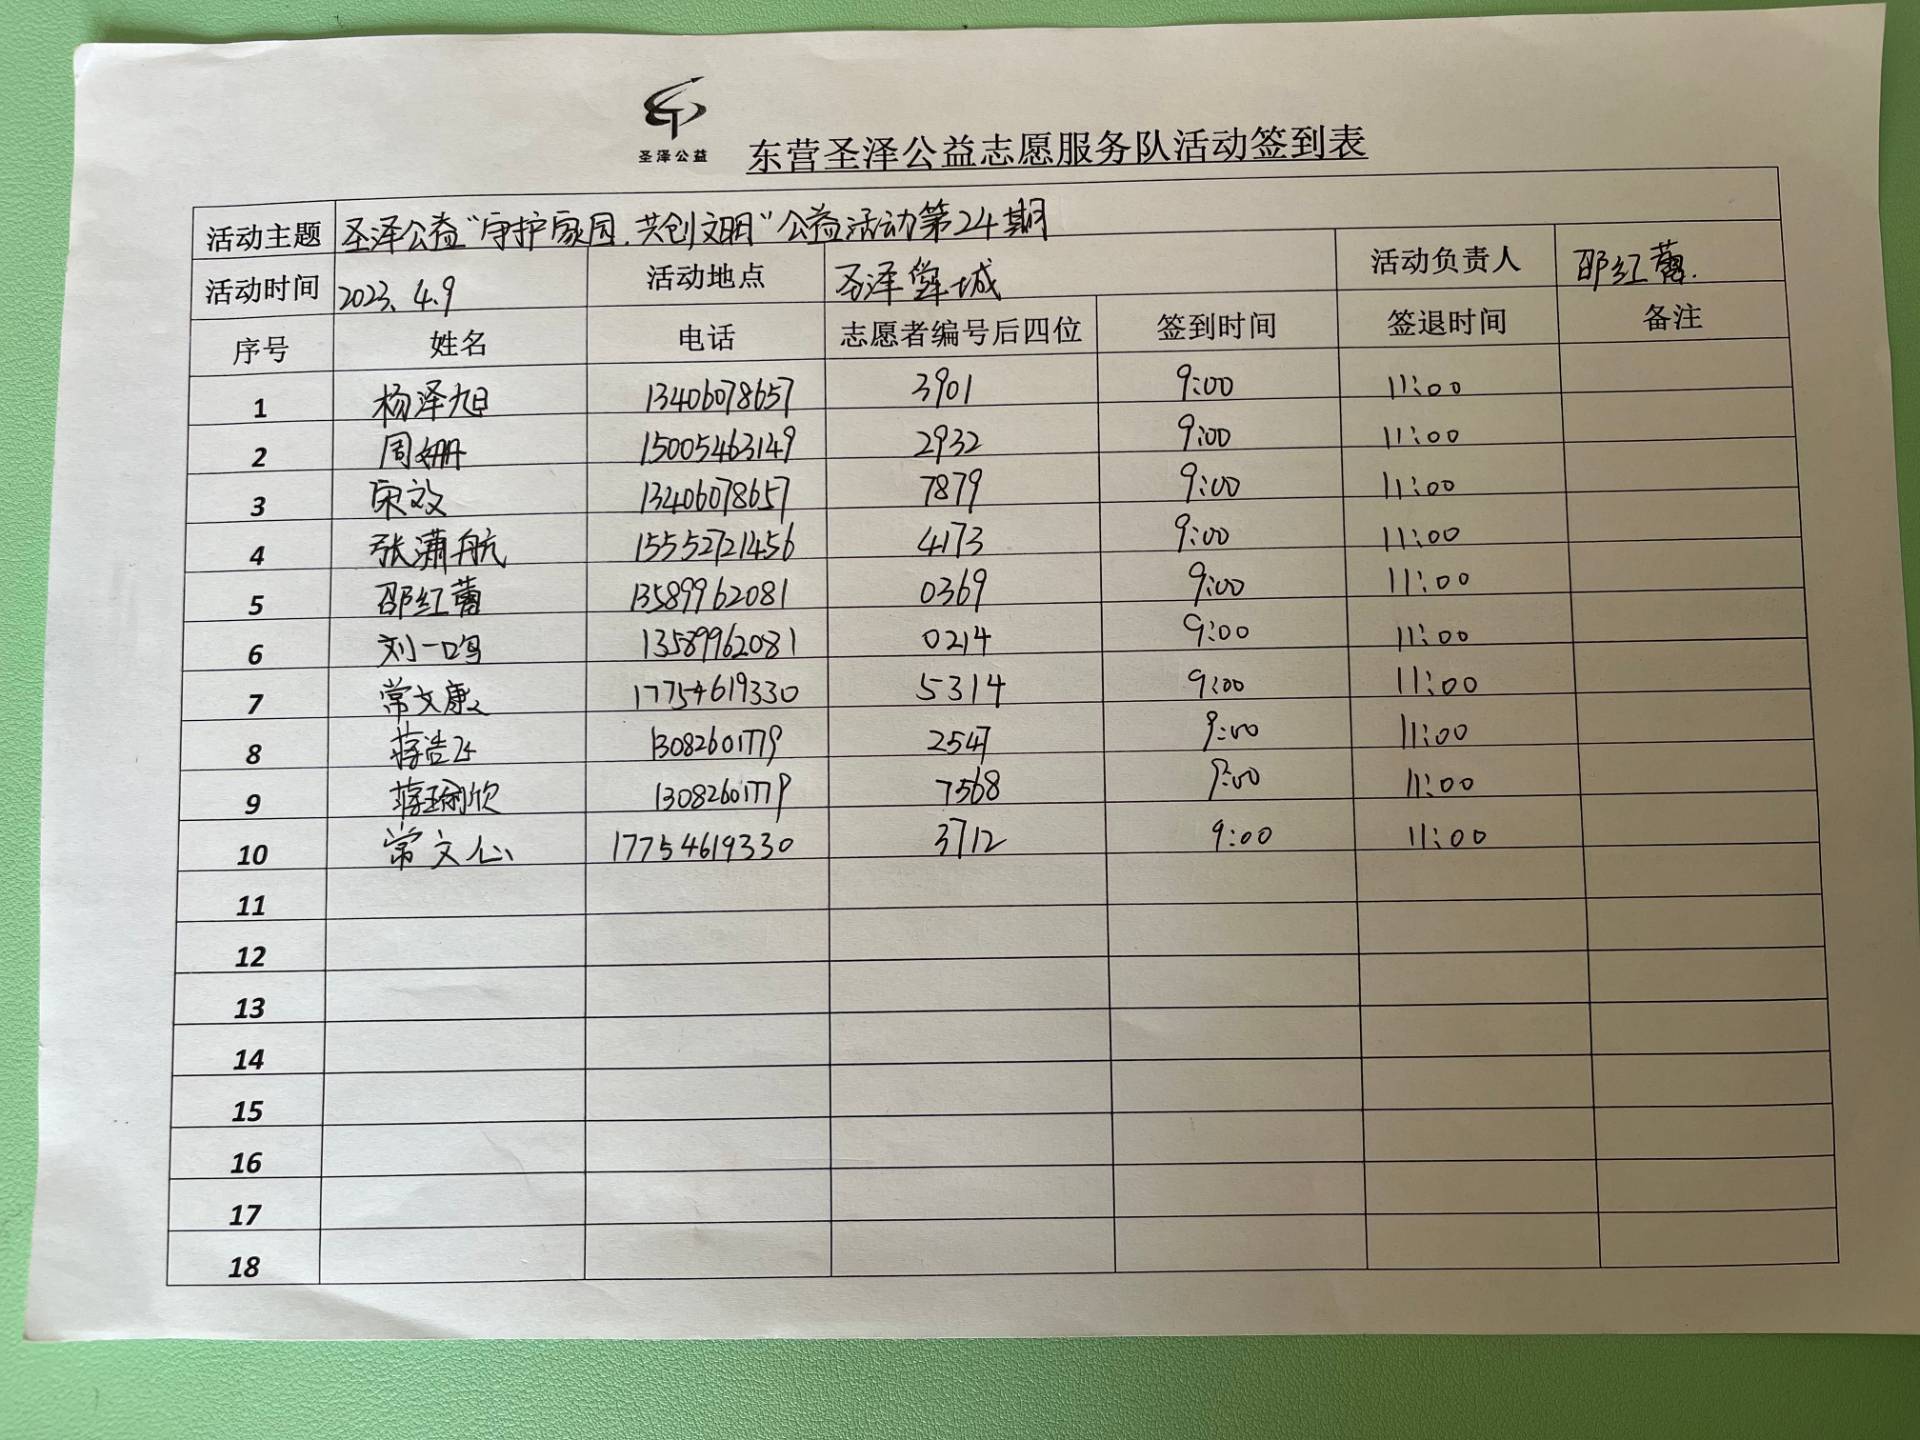 圣泽公益
东营圣泽公益志愿服务队活动签到表
活动主题 圣泽公益“守护家园.共创文明”公益活动第24期
活动时间 2023.4.9 活动地点 圣泽 城 活动负责人 邵红蕾.
序号 姓名 电话 志愿者编号后四位 签到时间 签退时间 备注
1 杨泽旭 13406078657 3901 9:00 11:00
2 周姗 15005463149 2932 9:00 11:00
3 宋效 13406078657 7879 9:00 11:00
4 张潇航 15552721456 4173 9:00 11:00
5 邵红蕾 13589962081 0369 9:00 11:00
6 刘一鸣 13589962081 0214 9:00 11:00
7 常文康 17754619330 5314 9:00 11:00
8 蒋浩飞 13082601779 2547 9:00 11:00
9 蒋瑜欣 13082601779 7568 9:00 11:00
10 常文心 17754619330 3712 9:00 11:00
11
12
13
14
15
16
17
18